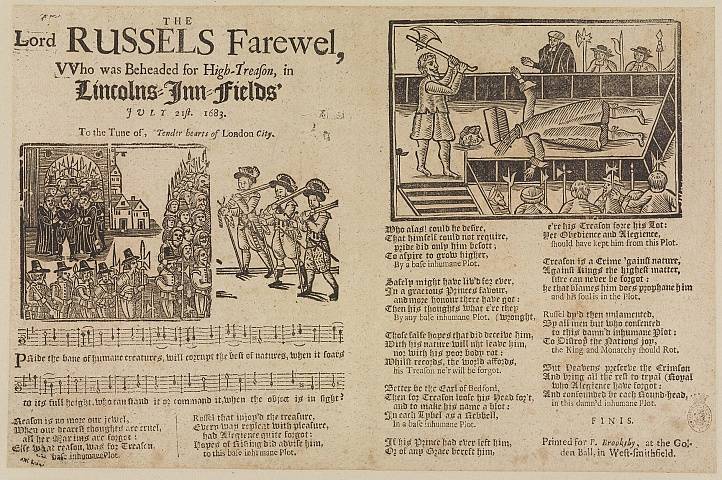 THE
Lord RUSSELS Farewel,
VVho was Beheaded for High-Treason, in
Lincolns-Inn-Fields
JULY 21st. 1683.
To the Tune of, Tender hearts of London City.
PRide the bane of humane creatures, will corrupt the best of natures, when it soars
to its full height, who can stand it or command it, when the object is in sight?
Reason is no more our jewel,
When our dearest thoughts are cruel,
all her Maxims are forgot:
Else what reason, was for Treason,
base inhumane Plot.
Russel that injoy'd the treasure,
Every way repleat with pleasure,
had Alegience quite forgot:
Hopes of Rising did advise him,
to this base inhumane Plot.
Who alas! could he desire,
That himself could not require,
pride did only him besot;
To aspire to grow higher,
By a base inhumane Plot.
Safely might have liv'd for ever,
In a gracious Princes favour,
and more honour there have got:
Then his thoughts what e're they
By any base inhumane Plot. (wrought,
Those false hopes that did deceive him,
With his nature will not leave him,
nor with his poor body rot:
Whilst records, the world affords,
his Treason ne'r will be forgot.
Better be the Earl of Bedford,
Then for Treason loose his Head for't,
and to make his name a blot:
In each Lybel as a Rebbell,
In a base inhumane Plot.
If his Prince had ever left him,
Or of any Grace bereft him,
e're his Treason force his Lot:
Yet Obedience and Alegience,
should have kept him from this Plot.
Treason is a Crime 'gainst nature,
Against Kings the highest matter,
sure can never be forgot:
he that names him does prophane him
and his soul is in the Plot.
Russel dy'd then unlamented,
By all men but who consented
to this damn'd inhumane Plot:
To Distroy the Nations joy,
the King and Monarchy should Rot.
But Heavens preserve the Crimson
And bring all the rest to tryal (Royal
who Alegience have forgot:
And confounded be each Round-head,
in this damn'd inhumane Plot.
FINIS.
Printed for P. Brooksby, at the Gol-
den Ball, in West-smithfield.